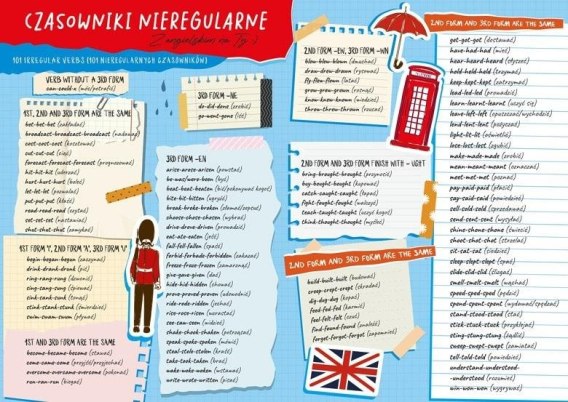 CZASOWNIKI NIEREGULARNE
Z angielskim na Ty :)
101 IRREGULAR VERBS (101 NIEREGULARNYCH CZASOWNIKÓW)
VERB WITHOUT A 3RD FORM
can-could-x (móc/potrafić)
1ST, 2ND AND 3RD FORM ARE THE SAME
bet-bet-bet (zakładać)
broadcast-broadcast-broadcast (nadawać)
cost-cost-cost (kosztować)
cut-cut-cut (ciąć)
forecast-forecast-forecast (prognozować)
hit-hit-hit (uderzać)
hurt-hurt-hurt (boleć)
let-let-let (pozwalać)
put-put-put (kłaść)
read-read-read (czytać)
set-set-set (ustawiać)
shut-shut-shut (zamykać)
1ST FORM 'I', 2ND FORM 'A', 3RD FORM 'U'
begin-began-begun (zaczynać)
drink-drank-drunk (pić)
ring-rang-rung (dzwonić)
sing-sang-sung (śpiewać)
sink-sank-sunk (tonąć)
stink-stank-stunk (śmierdzieć)
swim-swam-swum (pływać)
1ST AND 3RD FORM ARE THE SAME
become-became-become (stawać)
come-came-come (przyjść/przyjechać)
overcome-overcame-overcome (pokonać)
run-ran-run (biegać)
3RD FORM -NE
do-did-done (zrobić)
go-went-gone (iść)
3RD FORM -EN
arise-arose-arisen (powstać)
be-was/were-been (być)
beat-beat-beaten (bić/pokonywać kogoś)
bite-bit-bitten (gryźć)
break-broke-broken (złamać/zepsuć)
choose-chose-chosen (wybrać)
drive-drove-driven (prowadzić)
eat-ate-eaten (jeść)
fall-fell-fallen (spaść)
forbid-forbade-forbidden (zakazać)
freeze-froze-frozen (zamarzać)
give-gave-given (dać)
hide-hid-hidden (chować)
prove-proved-proven (udowodnić)
ride-rode-ridden (jechać)
rise-rose-risen (wzrastać)
see-saw-seen (widzieć)
shake-shook-shaken (potrząsać)
speak-spoke-spoken (mówić)
steal-stole-stolen (kraść)
take-took-taken (brać)
wake-woke-woken (wstawać)
write-wrote-written (pisać)
2ND FORM -EW, 3RD FORM -WN
blow-blew-blown (dmuchać)
draw-drew-drawn (rysować)
fly-flew-flown (latać)
grow-grew-grown (rosnąć)
know-knew-known (wiedzieć)
throw-threw-thrown (rzucać)
2ND FORM AND 3RD FORM FINISH WITH - UGHT
bring-brought-brought (przynosić)
buy-bought-bought (kupować)
catch-caught-caught (łapać)
fight-fought-fought (walczyć)
teach-taught-caught (uczyć kogoś)
think-thought-thought (myśleć)
2ND FORM AND 3RD FORM ARE THE SAME
build-built-built (budować)
creep-crept-crept (skradać)
dig-dug-dug (kopać)
feed-fed-fed (karmić)
feel-felt-felt (czuć)
find-found-found (znaleźć)
forget-forgot-forgot (zapomnieć)
2ND FORM AND 3RD FORM ARE THE SAME
get-got-got (dostawać)
have-had-had (mieć)
hear-heard-heard (słyszeć)
hold-held-held (trzymać)
keep-kept-kept (zatrzymać)
lead-led-led (prowadzić)
learn-learnt-learnt (uczyć się)
leave-left-left (opuszczać/wychodzić)
lend-lent-lent (pożyczać)
light-lit-lit (oświetlić)
lose-lost-lost (zgubić)
make-made-made (zrobić)
mean-meant-meant (oznaczać)
meet-met-met (poznać)
pay-paid-paid (płacić)
say-said-said (powiedzieć)
sell-sold-sold (sprzedawać)
send-sent-sent (wysyłać)
shine-shone-shone (świecić)
shoot-shot-shot (strzelać)
sit-sat-sat (siedzieć)
sleep-slept-slept (spać)
slide-slid-slid (ślizgać)
smell-smelt-smelt (wąchać)
speed-sped-sped (pędzić)
spend-spent-spent (wydawać/spędzać)
stand-stood-stood (stać)
stick-stuck-stuck (przyklejać)
sting-stung-stung (żądlić)
sweep-swept-swept (zamiatać)
tell-told-told (powiedzieć)
understand-understood-
-understood (rozumieć)
win-won-won (wygrać)